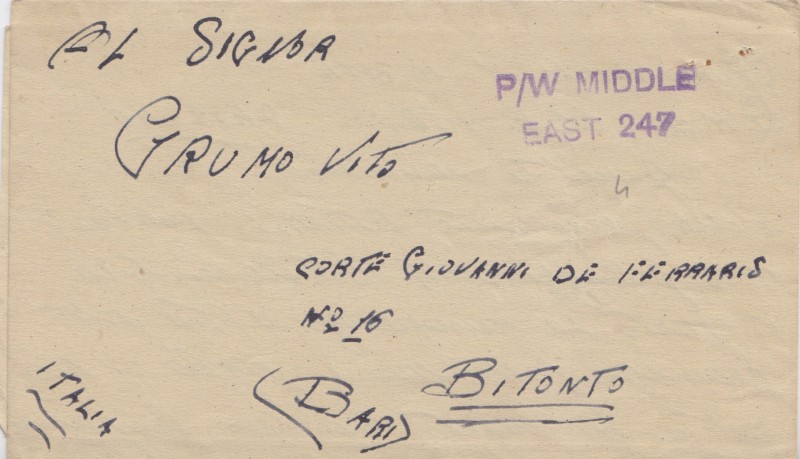 Al SIGNOR
GRUMO VITO
P/W MIDDLE
EAST 247
4
CORTE GIOVANNI DE FERRARIS
No 16
BITONTO
(BARI)
ITALIA